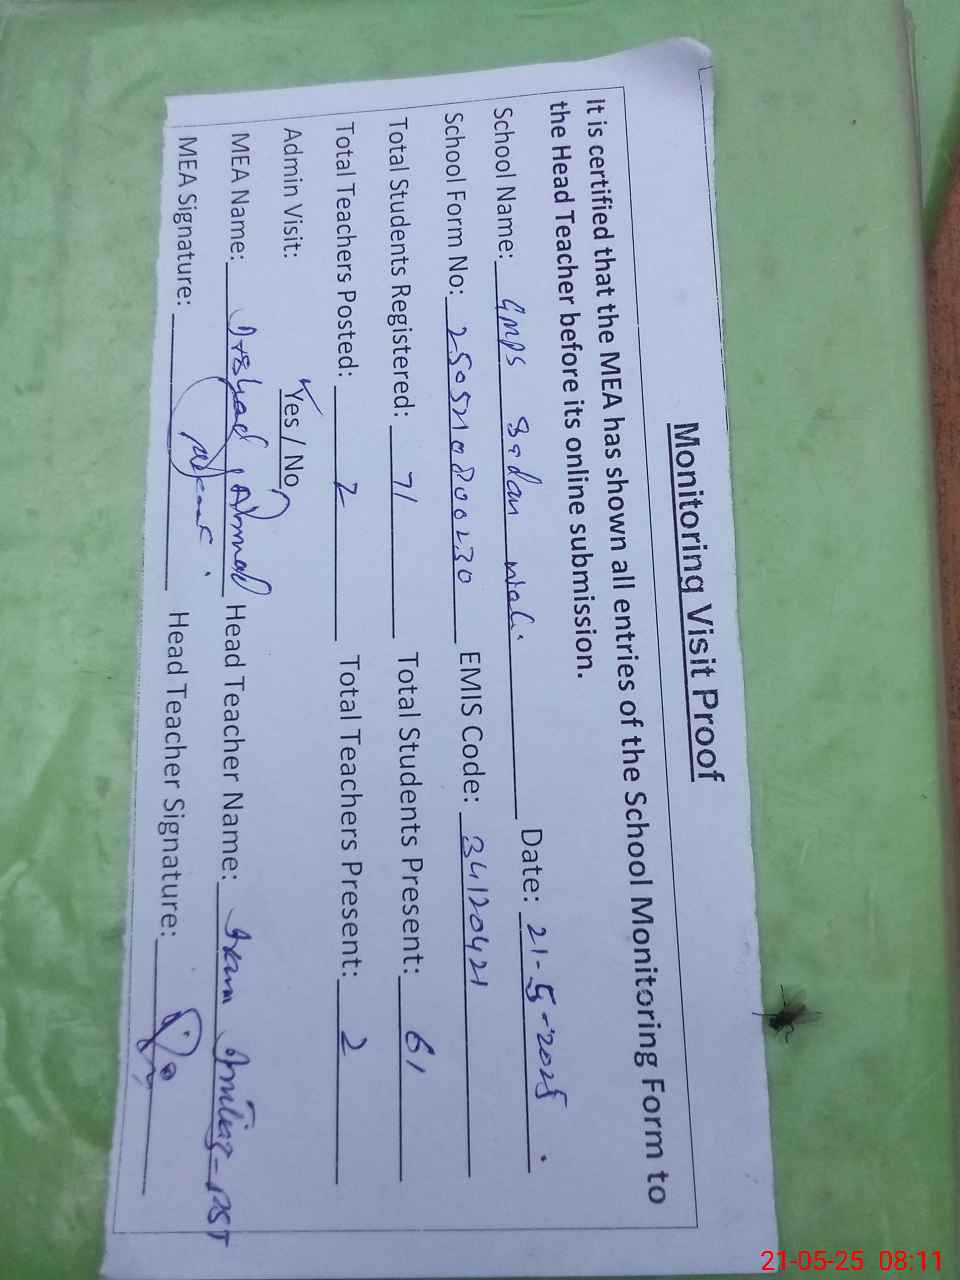 Monitoring Visit Proof
It is certified that the MEA has shown all entries of the School Monitoring Form to
the Head Teacher before its online submission.
School Name: GMPS Sadan wali Date: 21-5-2025
School Form No: EMIS Code: 34120421
Total Students Registered: 71 Total Students Present: 61
Total Teachers Posted: 2 Total Teachers Present: 2
Admin Visit: Yes / No
MEA Name: Irshad Ahmad Head Teacher Name: Imtiaz - PST
MEA Signature: Head Teacher Signature:
21-05-25 08:11